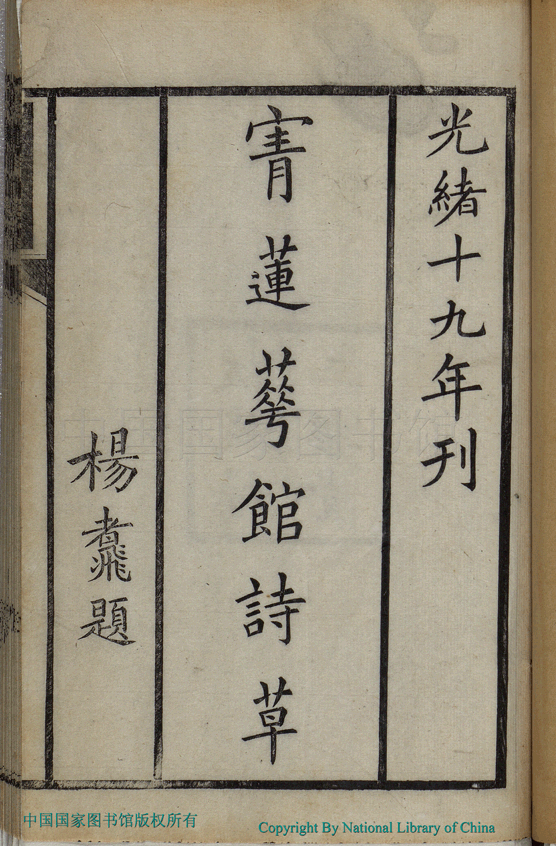 光緒十九年刊
寈蓮蕐館詩草
楊題
中国国家图书馆
中国国家图书馆版权所有
Copyright By National Library of China